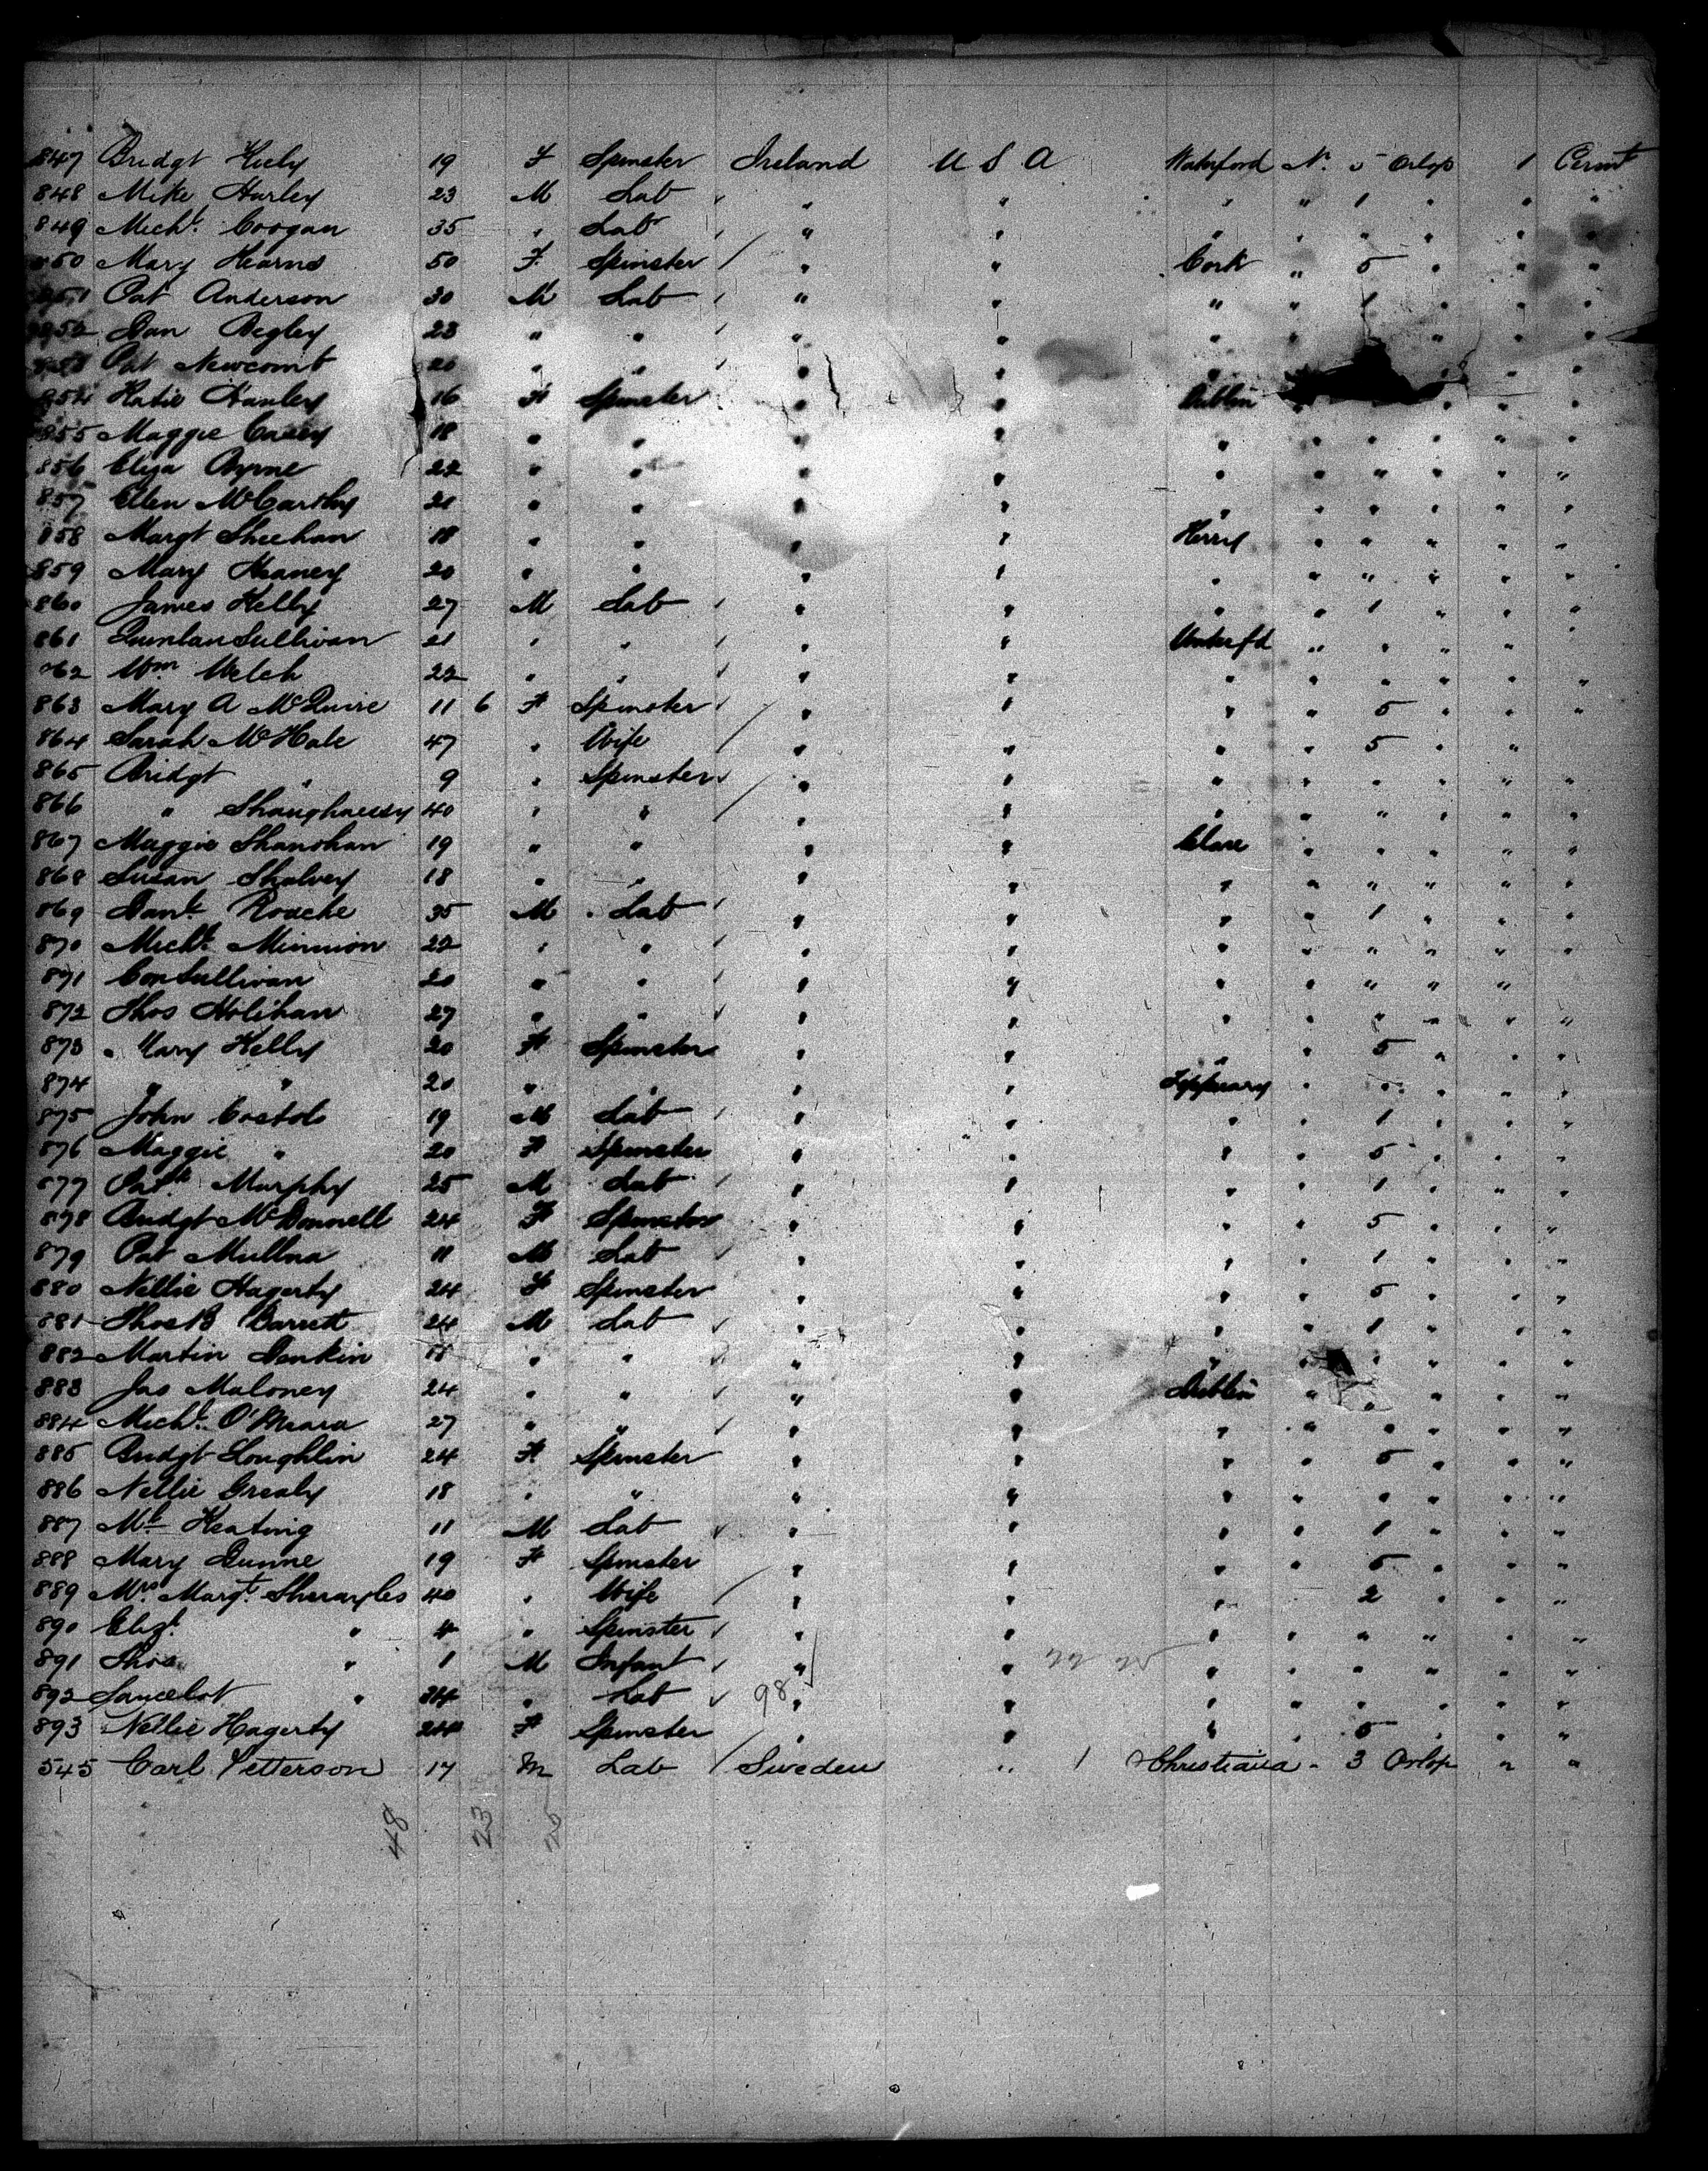 847 Bridgt Kiely 19 F Spinster Ireland U S A Waterford No. 5 Orlop 1 Permt
848 Mike Hurley 23 M Lab " " " " 1 " " "
849 Michl. Coogan 35 " Lab " " " " " " " "
850 Mary Kearns 50 F. Spinster / " " Cork " 5 " " "
851 Pat Anderson 30 M Lab " " " " 1 " " "
852 Dan Begley 23 " " " " " " " " "
853 Pat Newcomb 20 " " " " " " " "
854 Katie Hanley 16 F Spinster " " Dublin " " " "
855 Maggie Casey 18 " " " " " " " " " "
856 Eliza Byrne 22 " " " " " " " " " "
857 Ellen McCarthy 21 " " " " " " " " " "
858 Margt Sheehan 18 " " " " Kerry " " " " "
859 Mary Heaney 20 " " " " " " " " " "
860 James Kelly 27 M Lab " " " " 1 " " "
861 Quinlan Sullivan 21 " " " " Waterfd " " " " "
862 Wm Welch 22 " " " " " " " " " "
863 Mary A McGuire 11 6 F Spinster " " " " 5 " " "
864 Sarah McHale 47 " Wife / " " " " 5 " "
865 Bridgt " 9 " Spinster " " " " " " " "
866 " Shaughnessy 40 " " / " " " " " " " "
867 Maggie Shanohan 19 " " " " Clare " " " " "
868 Susan Shalvey 18 " " " " " " " " " "
869 Danl. Roache 35 M Lab " " " " 1 " " "
870 Michl. Minnion 22 " " " " " " " " " "
871 Con Sullivan 20 " " " " " " " " "
872 Thos Holihan 27 " " " " " " " " "
873 Mary Kelly 20 F Spinster " " " " 5 " " "
874 " " 20 " " " " Tipperary " " " " "
875 John Costolo 19 M Lab " " " " 1 " " "
876 Maggie " 20 F Spinster " " " " 5 " " "
877 Patk Murphy 25 M Lab " " " " 1 " " "
878 Bridgt McDonnell 24 F Spinster " " " " 5 " " "
879 Pat Mullna 11 M Lab " " " " 1 " " "
880 Nellie Hagerty 24 F Spinster " " " " 5 " " "
881 Thos B Barrett 24 M Lab " " " " 1 " " "
882 Martin Dankin 18 " " " " " " " " " "
883 Jas Maloney 24 " " " " Dublin " " " " "
884 Michl. O'Meara 27 " " " " " " " " " "
885 Bridgt Loughlin 24 F Spinster " " " " 5 " " "
886 Nellie Grealy 18 " " " " " " " " " "
887 Mt Keating 11 M Lab " " " " 1 " " "
888 Mary Dunne 19 F Spinster " " " " 5 " " "
889 Mrs Margt. 40 " Wife / " " " " 2 " " "
890 Elizt. " 4 " Spinster " " " " " " " "
891 Thos " 1 M Infant " " " " " " " "
892 Lancelot " 34 " Lab 98 " " " " " " " "
893 Nellie Hagerty 24 F Spinster / " " " " 5 " " "
545 Carl Petterson 17 M Lab / Sweden " 1 Christiana " 3 Orlop " "
48 23 25